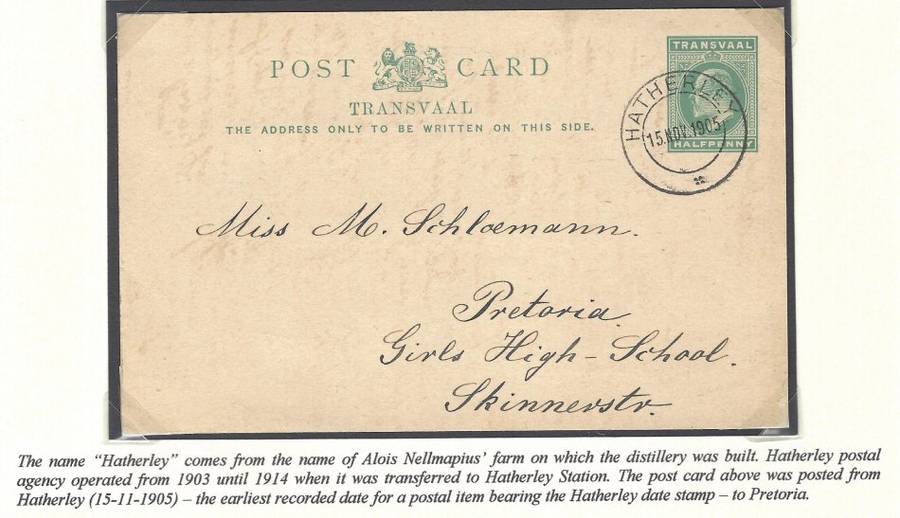 POST CARD
TRANSVAAL
THE ADDRESS ONLY TO BE WRITTEN ON THIS SIDE.
TRANSVAAL
HALFPENNY
HATHERLEY
15.NOV.1905
Miss M. Schloemann.
Pretoria
Girls High-School.
Skinnerstr.
The name “Hatherley” comes from the name of Alois Nellmapius’ farm on which the distillery was built. Hatherley postal
agency operated from 1903 until 1914 when it was transferred to Hatherley Station. The post card above was posted from
Hatherley (15-11-1905) – the earliest recorded date for a postal item bearing the Hatherley date stamp – to Pretoria.